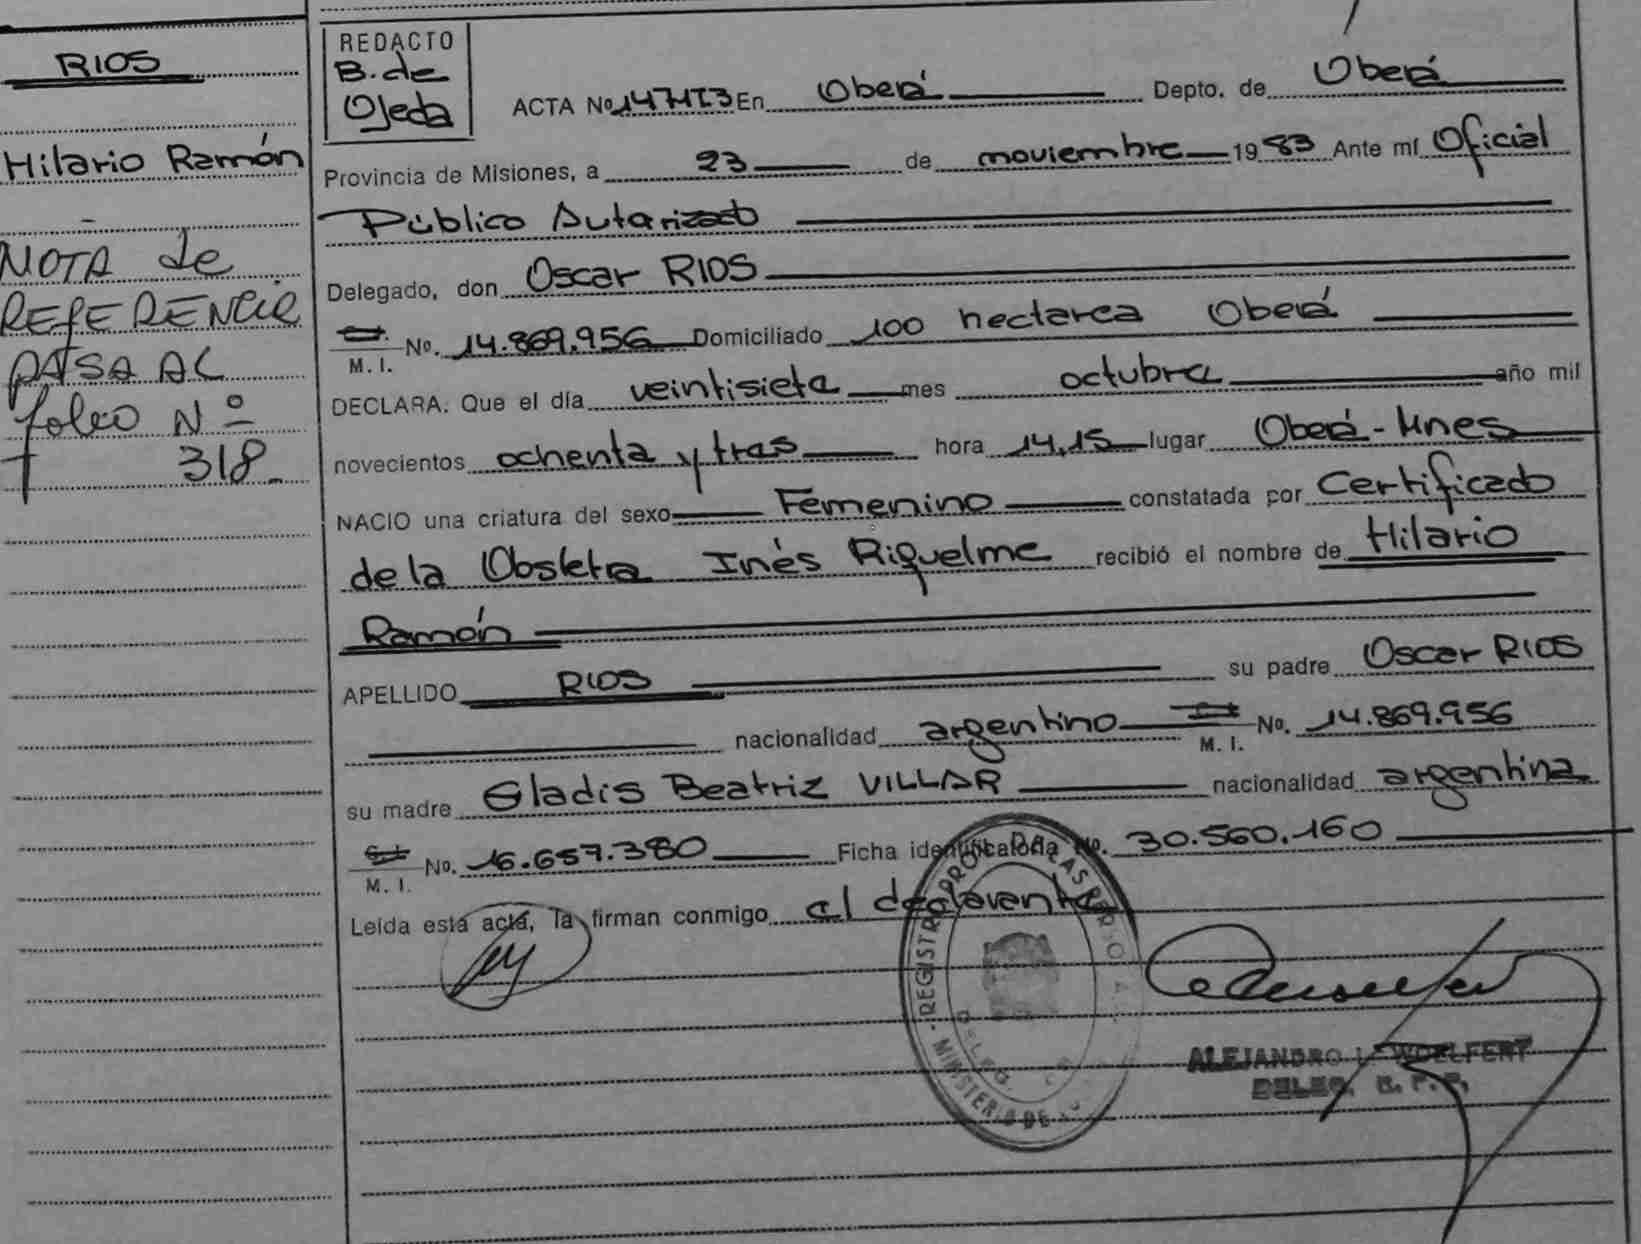 RIOS
Hilario Ramón
NOTA de
REFERENCIA
PASA AL
folio Nº
318
REDACTO
B. de
Ojeda
ACTA No 1471T3 En Oberá Depto. de Oberá
Provincia de Misiones, a 23 de noviembre 1983 Ante mí Oficial
Público Autorizado
Delegado, don Oscar RIOS
M. I. No. 14.869.956 Domiciliado 100 hectarea Oberá
DECLARA: Que el día veintisiete mes octubre año mil
novecientos ochenta y tres hora 14,15 lugar Oberá - Mnes
NACIO una criatura del sexo Femenino constatada por Certificado
de la Obstetra Inés Riquelme recibió el nombre de Hilario
Ramón
APELLIDO RIOS su padre Oscar RIOS
nacionalidad argentino M. I. No. 14.869.956
su madre Gladis Beatriz VILLAR nacionalidad argentina
M. I. No. 16.657.380 Ficha identificatoria No. 30.560.160
Leída esta acta, la firman conmigo el declarante
REGISTRO PROV. DE LAS PERSONAS
MINISTERIO DE
DELEG.
ALEJANDRO L. WOELFERT
DELEG. R. P. P.